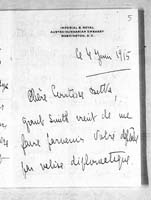 5
IMPERIAL & ROYAL
AUSTRO-HUNGARIAN EMBASSY
WASHINGTON, D.C.
le 4 Juin 1915
Chère Comtesse
Grant Smith vient de me
faire parvenir votre
par valise diplomatique.